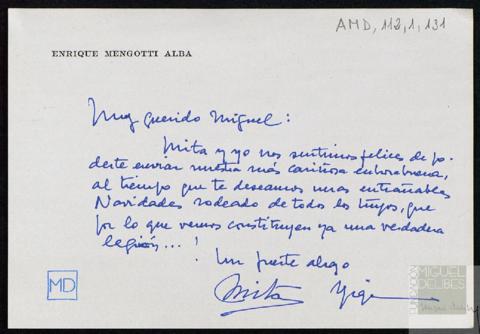 AMD, 112, 1, 131
ENRIQUE MENGOTTI ALBA
Muy querido Miguel:
Mita y yo nos sentimos felices de po-
derte enviar nuestra más cariñosa enhorabuena,
al tiempo que te deseamos unas entrañables
Navidades rodeado de todos los tuyos, que
por lo que vemos constituyen ya una verdadera
legión...!
Un fuerte abrazo
Mita
MD
MIGUEL
DELIBES